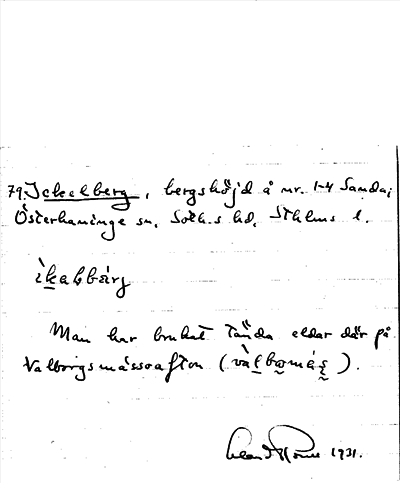 79. Ickelberg, bergshöjd å nr. 1-4 Sanda,
Österhaninge sn, Soth.s hd, Sthlms l.
ìkalbärj
Man har brukat tända eldar där på
Valborgsmässoafton (
).
1931.